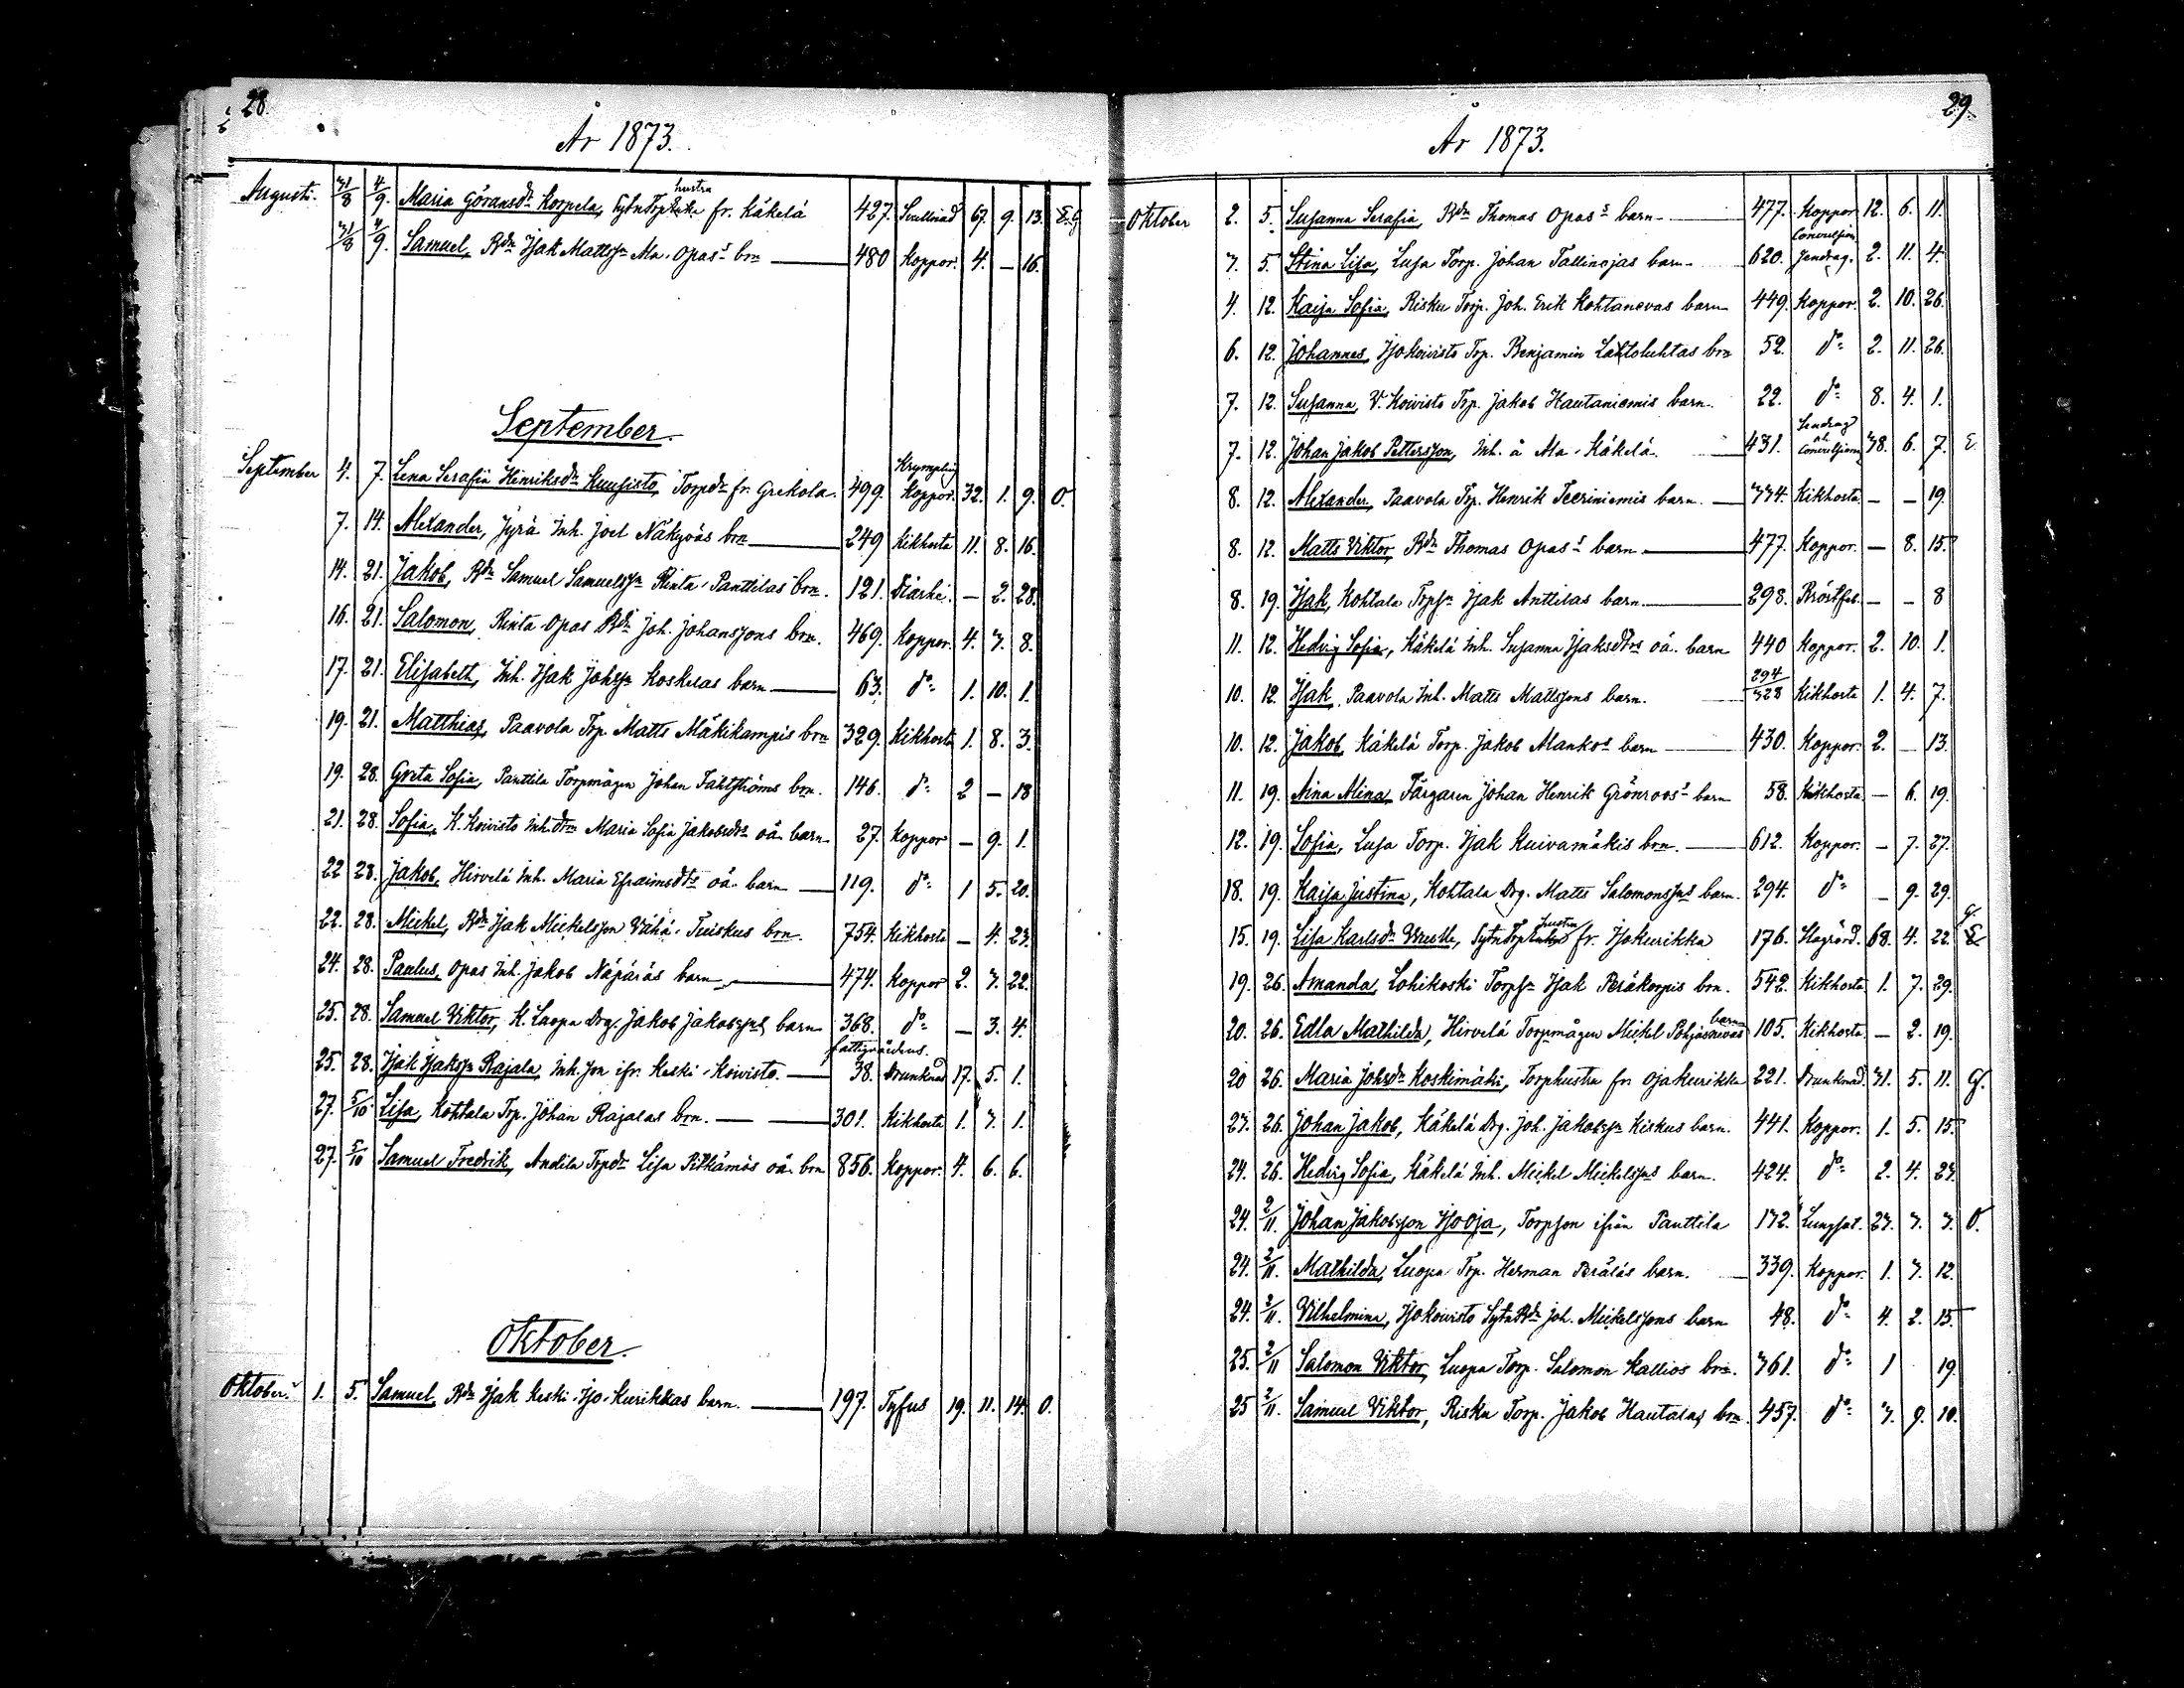 28.
År 1873.
Augusti. 31/8 4/9. Maria Göransdr Korpela, SytnTorphustru fr. Käkelä 427. Svullnad 67. 9. 13. E.G
31/8 4/9. Samuel, Bdn Isak Mattssn Ala-Opas's brn 480 Koppor. 4. — 16.
September.
September 4. 7. Lena Serafia Henriksdr Kuusisto, Torpdr fr. Grekola. 499. Krympling Koppor. 32. 1. 9. O.
7. 14. Alexander, Jyrä Inh. Joel Näkyväs brn 249 Kikhosta 11. 8. 16.
14. 21. Jakob, Bdn Samuel Samuelssn Rinta-Panttilas brn. 121. Diarhé. — 2. 28.
16. 21. Salomon, Rinta Opas Bdn Joh. Johanssons brn. 469. Koppor. 4. 3. 8.
17. 21. Elisabeth, Inh. Isak Johssn Koskelas barn 63. do 1. 10. 1.
19. 21. Matthias, Paavola Trp. Matts Mäkikampis brn 329. Kikhosta 1. 8. 3.
19. 28. Greta Sofia, Panttila Torpmågen Johan Fahlströms brn. 146. do 2 — 18
21. 28. Sofia, K. Koivisto Inh.drn Maria Sofia Jakobsdrs oä. barn. 27. Koppor — 9. 1.
22 28. Jakob, Hirvelä Inh. Maria Efraimsdrs oä. barn 119. do 1 5. 20.
22. 28. Mickel, Bdn Isak Mickelsson Vähä-Tuiskus brn. 754. Kikhosta — 4. 23.
24. 28. Paulus, Opas Inh. Jakob Näpäräs barn 474. Koppor 2. 3. 22.
25. 28. Samuel Viktor, K. Luopa Drg. Jakob Jakobssns barn 368. do — 3. 4.
25. 28. Isak Isakssn Rajala, Inh. son ifr. Keski-Koivisto. fattigvårdens. 38. Drunknad 17. 5. 1.
27. 5/10 Lisa, Kohtala Trp. Johan Rajalas brn. 301. Kikhosta 1. 3. 1.
27. 5/10 Samuel Fredrik, Andila Trpdr Lisa Pitkämös oä. brn 856. Koppor. 4. 6. 6.
Oktober.
Oktober. 1. 5. Samuel, Bdn Isak Keski-Iso-Kurikkas barn. 197. Tyfus 19. 11. 14. O.
29.
År 1873.
Oktober 2. 5. Susanna Serafia, Bdn Thomas Opas's barn 477. Koppor 12. 6. 11.
3. 5. Stina Lisa, Lusa Torp. Johan Tallinojas barn. 620. Convulsion Sendrag. 2. 11. 4.
4. 12. Kaisa Sofia, Risku Torp. Joh. Erik Kohtanevas barn 449. Koppor. 2. 10. 26.
6. 12. Johannes, Isokoivisto Trp. Benjamin Lahtoluhtas brn 52. do 2. 11. 26.
7. 12. Susanna, V. Koivisto Trp. Jakob Hautaniemis barn. 22. do 8. 4. 1.
7. 12. Johan Jakob Pettersson, Inh. å Ala-Käkelä. 431. Sendrag el. Convulsioner 38. 6. 7. E.
8. 12. Alexander, Paavola Trp. Henrik Teeriniemis barn. 334. Kikhosta — — 19.
8. 12. Matts Viktor, Bdn Thomas Opas's barn. 477. Koppor. — 8. 15.
8. 19. Isak, Kohtala Trpsn Isak Anttilas barn. 298. Bröstfeb. — — 8
11. 12. Hedvig Sofia, Käkelä Inh. Susanna Isaksdtrs oä. barn 440 Koppor. 2. 10. 1.
10. 12. Isak, Paavola Inh. Matts Mattssons barn. 294/328 Kikhosta 1. 4. 7.
10. 12. Jakob, Käkelä Torp. Jakob Mankos barn 430. Koppor. 2. — 13.
11. 19. Aina Alina, Färgaren Johan Henrik Grönroos's barn 58. Kikhosta — 6. 19.
12. 19. Sofia, Lusa Torp. Isak Kuivamäkis brn. 612. Koppor. — 7. 27.
18. 19. Kaisa Justina, Kohtala Drg. Matts Salomonssns barn. 294. do — 9. 29.
15. 19. Lisa Karlsdr, SytnTorphustru fr. Isokurikka 176. 68. 4. 22. G.
19. 26. Amanda, Lohikoski Torpsn Isak Peräkorpis brn. 542. Kikhosta 1. 7. 29.
20. 26. Edla Mathilda, Hirvelä Torpmågen Mickel Pohjasnevas barn 105. Kikhosta — 2. 19.
20 26. Maria Johsdr Koskimäki, Torphustru fr. Ojakurikka 221. Drunknad. 31. 5. 11. G.
23. 26. Johan Jakob, Käkelä Drg. Joh. Jakobssn Kiskus barn. 441. Koppor. 1. 5. 15.
24. 26. Hedvig Sofia, Käkelä Inh. Mickel Mickelssns barn. 424. do 2. 4. 23.
24. 2/11. Johan Jakobsson Isooja, Torpson ifrån Panttila 132. Lungsot. 23. 3. 3. O.
24. 2/11. Mathilda, Luopa Trp. Herman Peräläs barn. 339. Koppor. 1. 3. 12.
24. 2/11. Vilhelmina, Isokoivisto SytnBdn Joh. Mickelssons barn 48. do 4. 2. 15.
25. 2/11 Salomon Viktor, Luopa Torp. Salomon Kallios brn. 361. do 1 19.
25 2/11. Samuel Viktor, Risku Torp. Jakob Hautalas brn. 457. do 3. 9. 10.